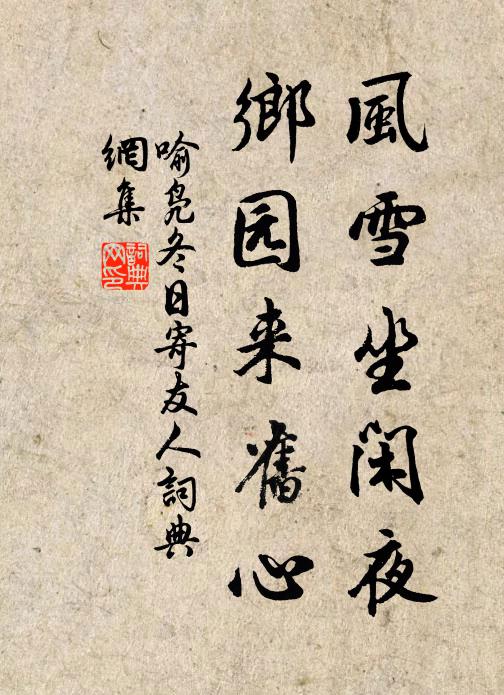 風雪坐閑夜
鄉园来舊心
喻凫冬日寄友人詞典
網集
詞典网印